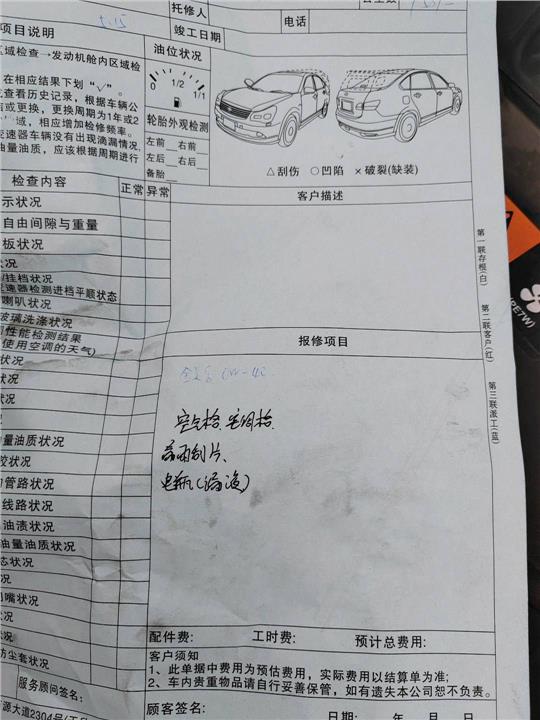 托修人
电话
竣工日期
5.15
项目说明
油位状况
区域检查→发动机舱内区域检
在相应结果下划“√”。
查看历史记录，根据车辆公
或更换，更换周期为1年或2
域，相应增加检修频率。
变速器车辆没有出现滴漏情况，
油量油质，应该根据周期进行
0 1/2 1/1
轮胎外观检测
左前 右前
左后 右后
备胎
△刮伤 ○凹陷 ×破裂(缺装)
检查内容 正常 异常
客户描述
示状况
自由间隙与重量
板状况
状况
挂档状况
变速器检测进档平顺状态
喇叭状况
玻璃洗涤状况
性能检测结果
使用空调的天气)
状况
状况
状况
量油质状况
状况
管路状况
线路状况
油渍状况
油量油质状况
芯状况
况
嘴状况
状况
防尘套状况
报修项目
空气格、空调格、
雨刮片、
电瓶(漏液)
第一联存根(白)
第二联客户(红)
第三联派工(蓝)
(RE7W)
配件费: 工时费: 预计总费用:
客户须知
1、此单据中费用为预估费用，实际费用以结算单为准;
2、车内贵重物品请自行妥善保管，如有遗失本公司恕不负责。
服务顾问签名:
顾客签名: 日期: 年 月 日
源大道2304号